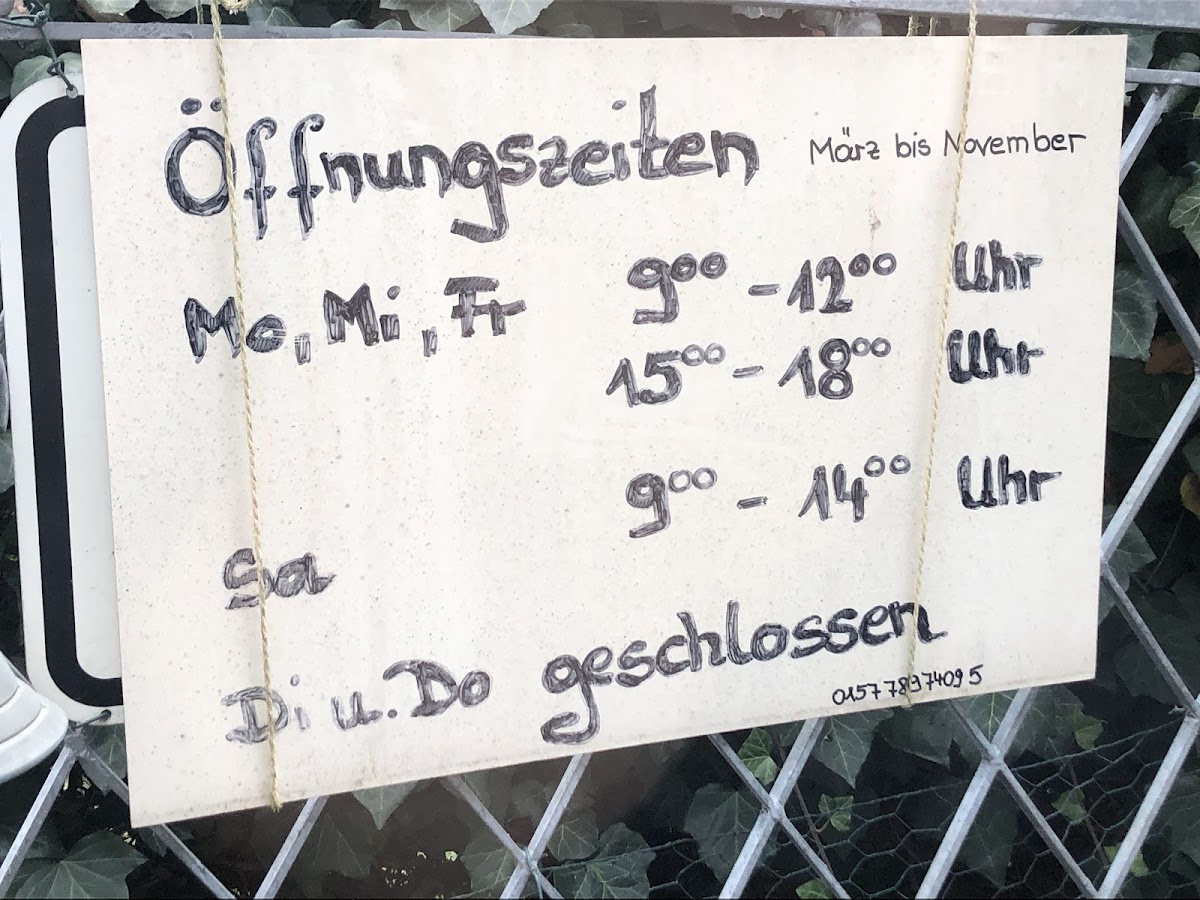 Öffnungszeiten März bis November
Mo, Mi, Fr 9⁰⁰ - 12⁰⁰ Uhr
15⁰⁰ - 18⁰⁰ Uhr
9⁰⁰ - 14⁰⁰ Uhr
Sa
Di u. Do geschlossen
01577897409 5